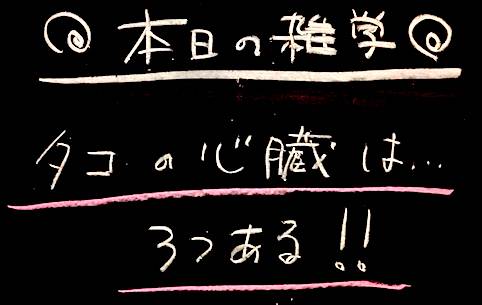 本日の雑学
タコの心臓は...
3つある!!